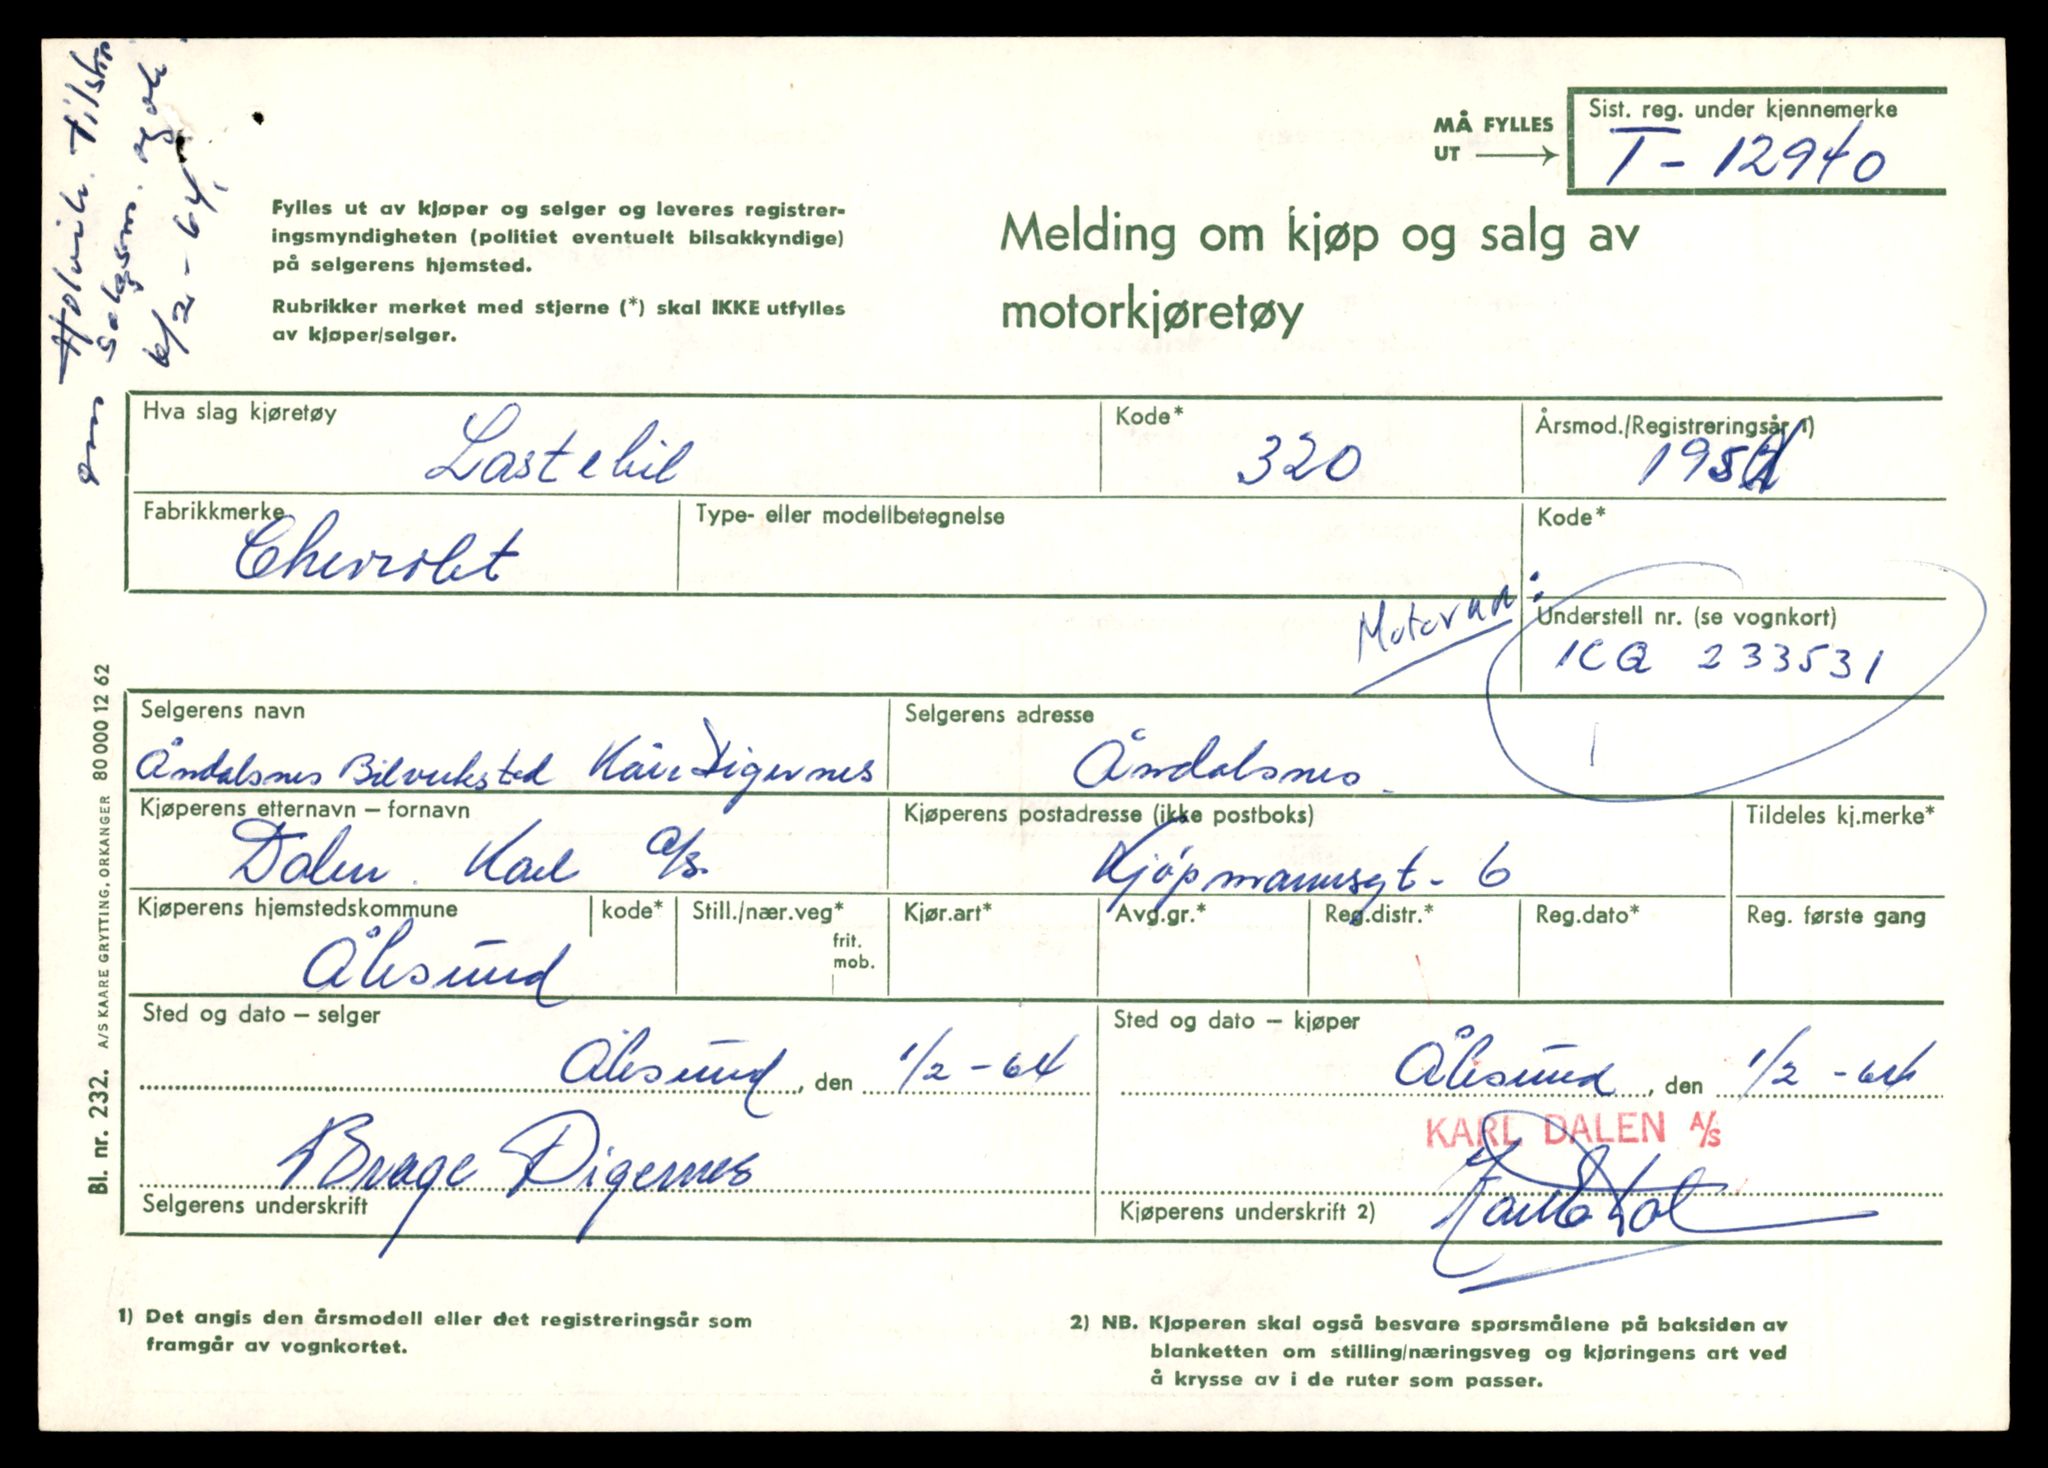 Holvik. tilskr
om salgsm. og ok
6/2-64
MÅ FYLLES
UT
Sist. reg. under kjennemerke
T-12940
Fylles ut av kjøper og selger og leveres registrer-
ingsmyndigheten (politiet eventuelt bilsakkyndige)
på selgerens hjemsted.
Rubrikker merket med stjerne (*) skal IKKE utfylles
av kjøper/selger.
Melding om kjøp og salg av
motorkjøretøy
Hva slag kjøretøy
Lastebil
Kode*
320
Årsmod./Registreringsår 1)
195
Fabrikkmerke
Chevrolet
Type- eller modellbetegnelse
Kode*
Motornr:
Understell nr. (se vognkort)
KQ 233531
Selgerens navn
Åndalsnes Bilverksted Kåre Digernes
Selgerens adresse
Åndalsnes.
Kjøperens etternavn – fornavn
Dalen. Karl A/S.
Kjøperens postadresse (ikke postboks)
Kjøpmannsgt- 6
Tildeles kj.merke*
Kjøperens hjemstedskommune
Ålesund
kode*
Still./nær.veg*
frit.
mob.
Kjør.art*
Avg.gr.*
Reg.distr.*
Reg.dato*
Reg. første gang
Sted og dato – selger
Ålesund, den 1/2-64
Sted og dato – kjøper
Ålesund, den 1/2-64
KARL DALEN A/S
Brage Digernes
Selgerens underskrift
Kjøperens underskrift 2)
1) Det angis den årsmodell eller det registreringsår som
framgår av vognkortet.
2) NB. Kjøperen skal også besvare spørsmålene på baksiden av
blanketten om stilling/næringsveg og kjøringens art ved
å krysse av i de ruter som passer.
Bl. nr. 232. A/S KAARE GRYTTING, ORKANGER 80 000 12 62